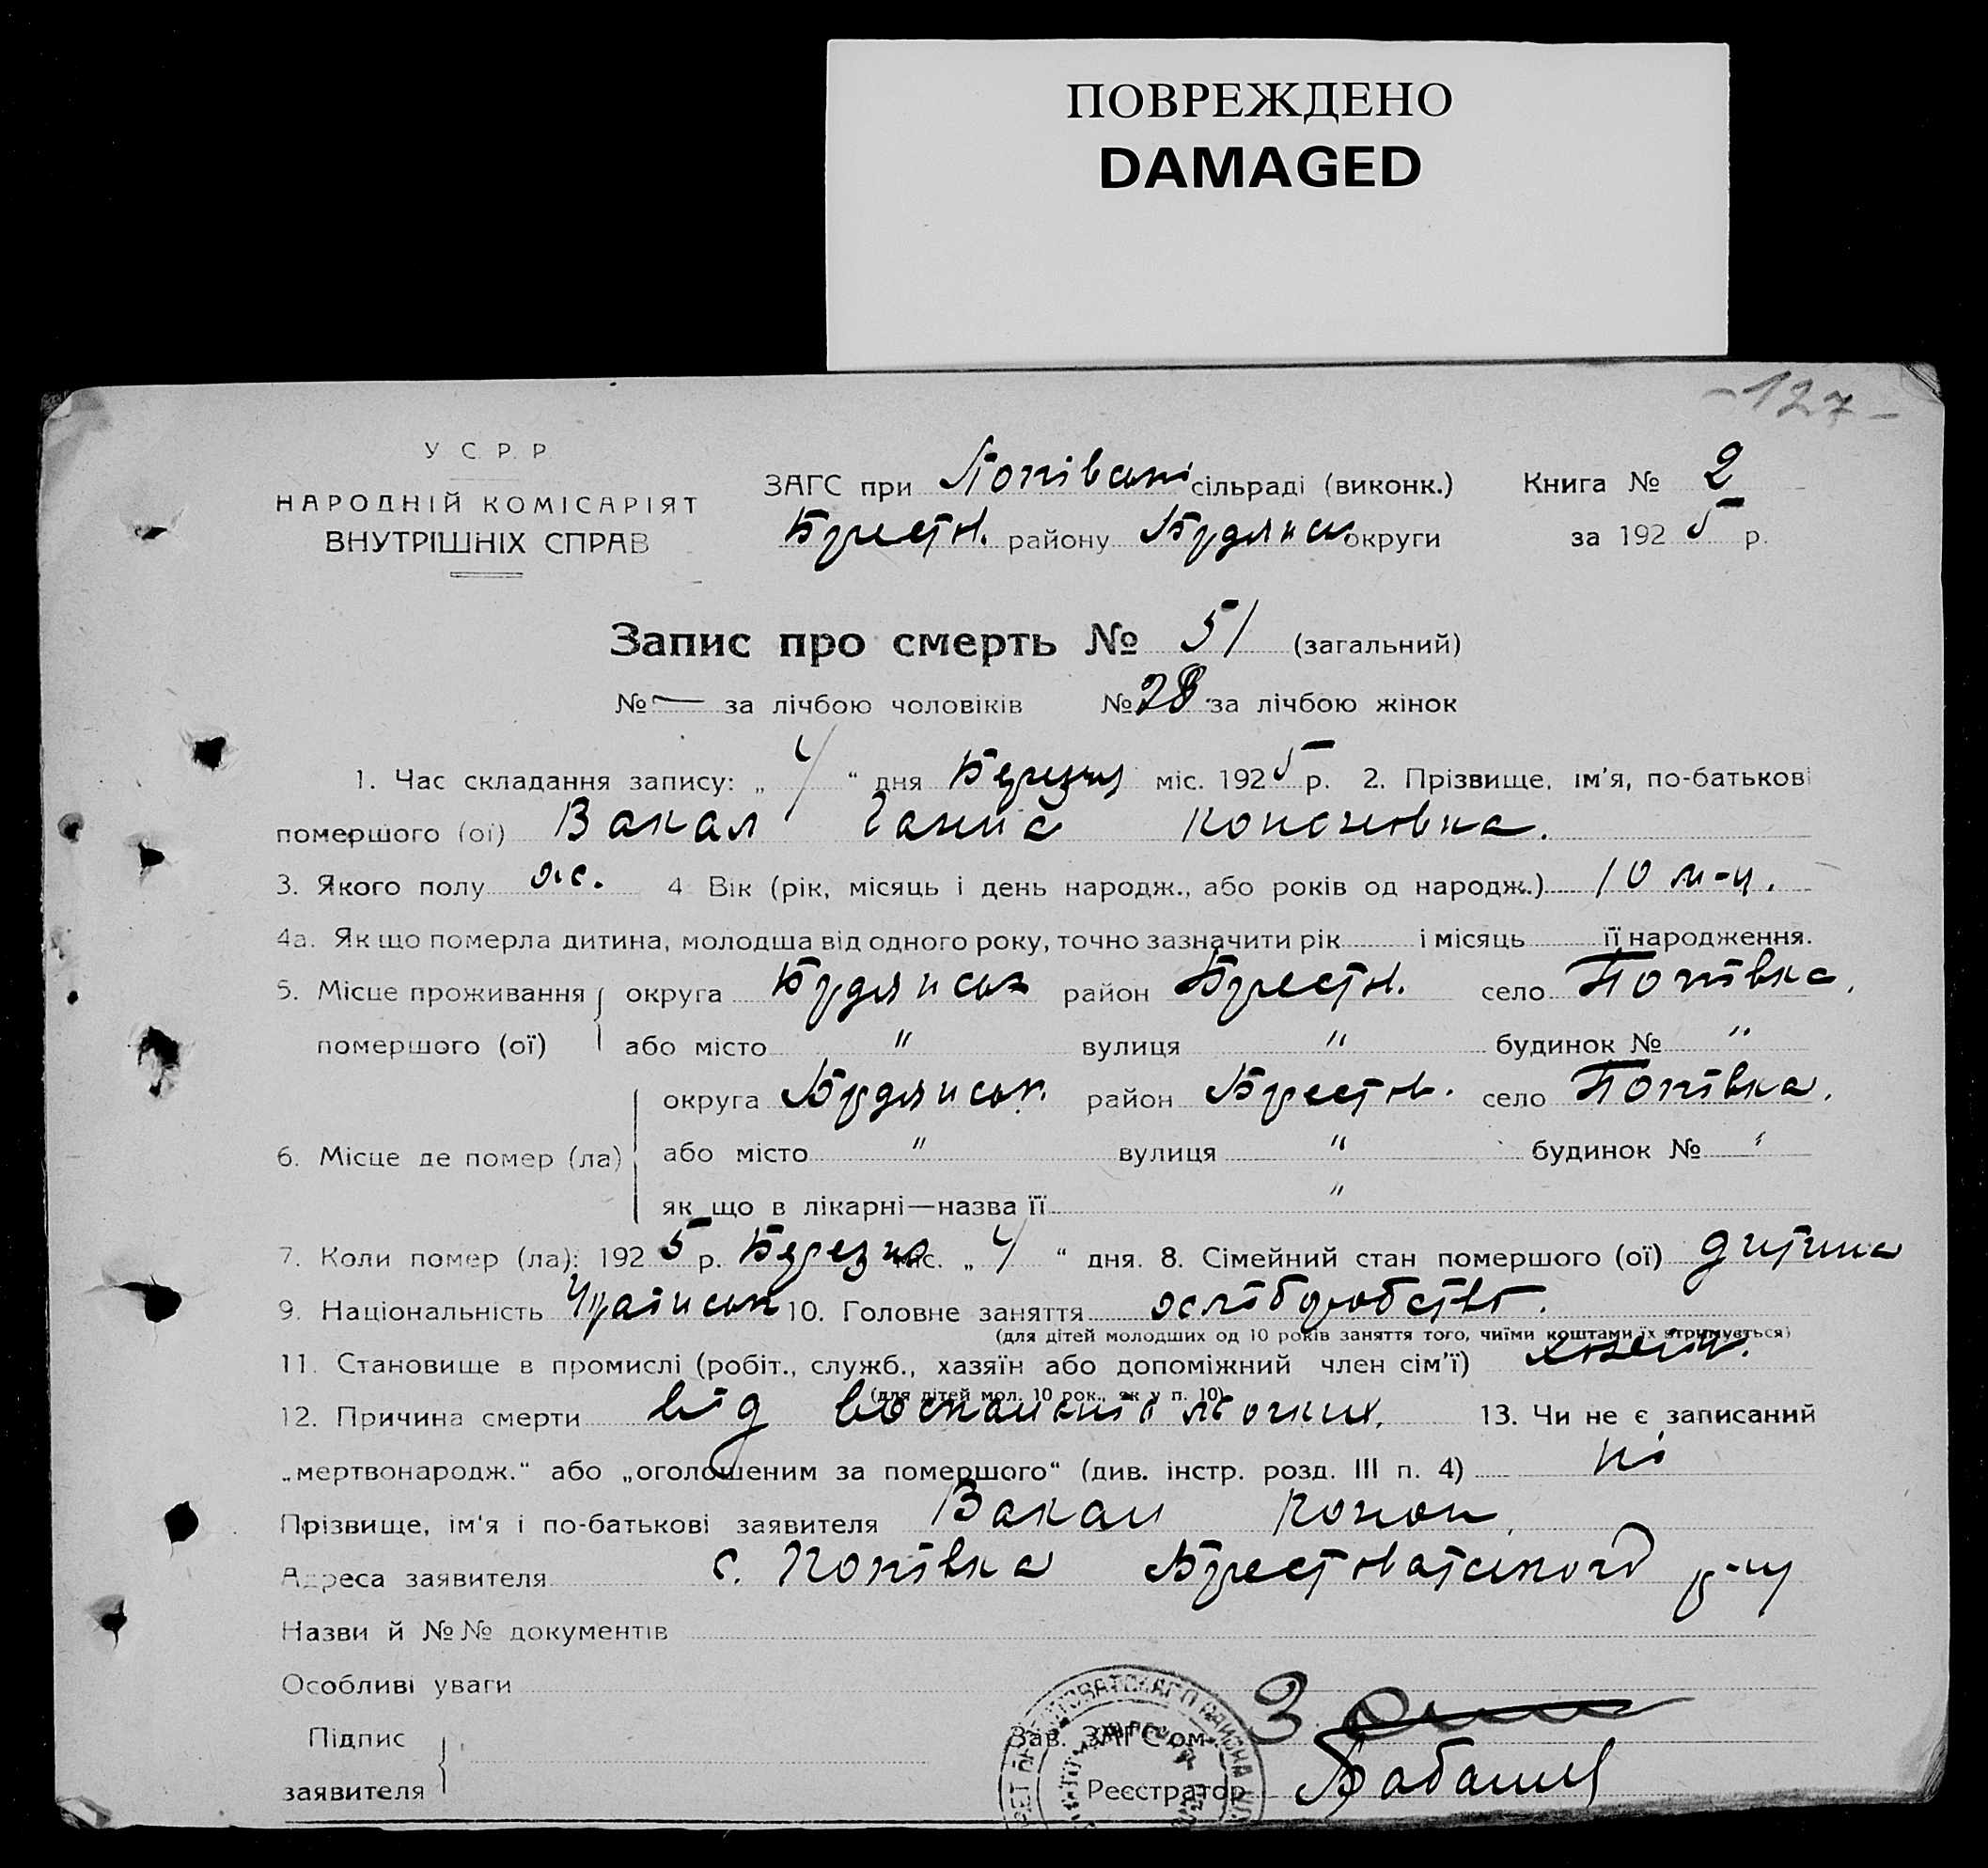 ПОВРЕЖДЕНО
DAMAGED
-127-
У С. Р. Р.
НАРОДНІЙ КОМІСАРІЯТ
ВНУТРІШНІХ СПРАВ
ЗАГС при Попівські сільраді (виконк.) Книга № 2
району округи за 192 5 р.
Запис про смерть № 51 (загальний)
№ — за лічбою чоловіків № 28 за лічбою жінок
1. Час складання запису: „ 4 “ дня Березня міс. 192 5 р. 2. Прізвище, ім'я, по-батькові
помершого (ої) Вакал Ганна Кононовна.
3. Якого полу ж. 4 Вік (рік, місяць і день народж., або років од народж.) 10 м-ц.
4а. Як що померла дитина, молодша від одного року, точно зазначити рік і місяць її народження.
5. Місце проживання округа район село Попівка.
помершого (ої) або місто " вулиця " будинок № "
округа район село Попівка.
6. Місце де помер (ла) або місто " вулиця " будинок № "
як що в лікарні—назва її "
7. Коли помер (ла): 192 5 р. Березня міс. „ 4 “ дня. 8. Сімейний стан помершого (ої) дитина
9. Національність 10. Головне заняття
(для дітей молодших од 10 років заняття того, чиїми коштами їх отримується)
11. Становище в промислі (робіт., служб., хазяїн або допоміжний член сім'ї)
(для дітей мол. 10 рок., як у п. 10)
12. Причина смерти від легких. 13. Чи не є записаний
„мертвонародж.“ або „оголошеним за помершого“ (див. інстр. розд. III п. 4) ні
Прізвище, ім'я і по-батькові заявителя Вакал Конон
Адреса заявителя с. Попівка р-ну
Назви й №№ документів
Особливі уваги
Підпис
заявителя
Зав. ЗАГС'ом
Реєстратор